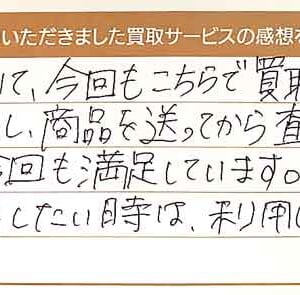 いただきました買取サービスの感想を
て、今回もこちらで買取
し、商品を送ってから査
今回も満足しています。
したい時は、利用し